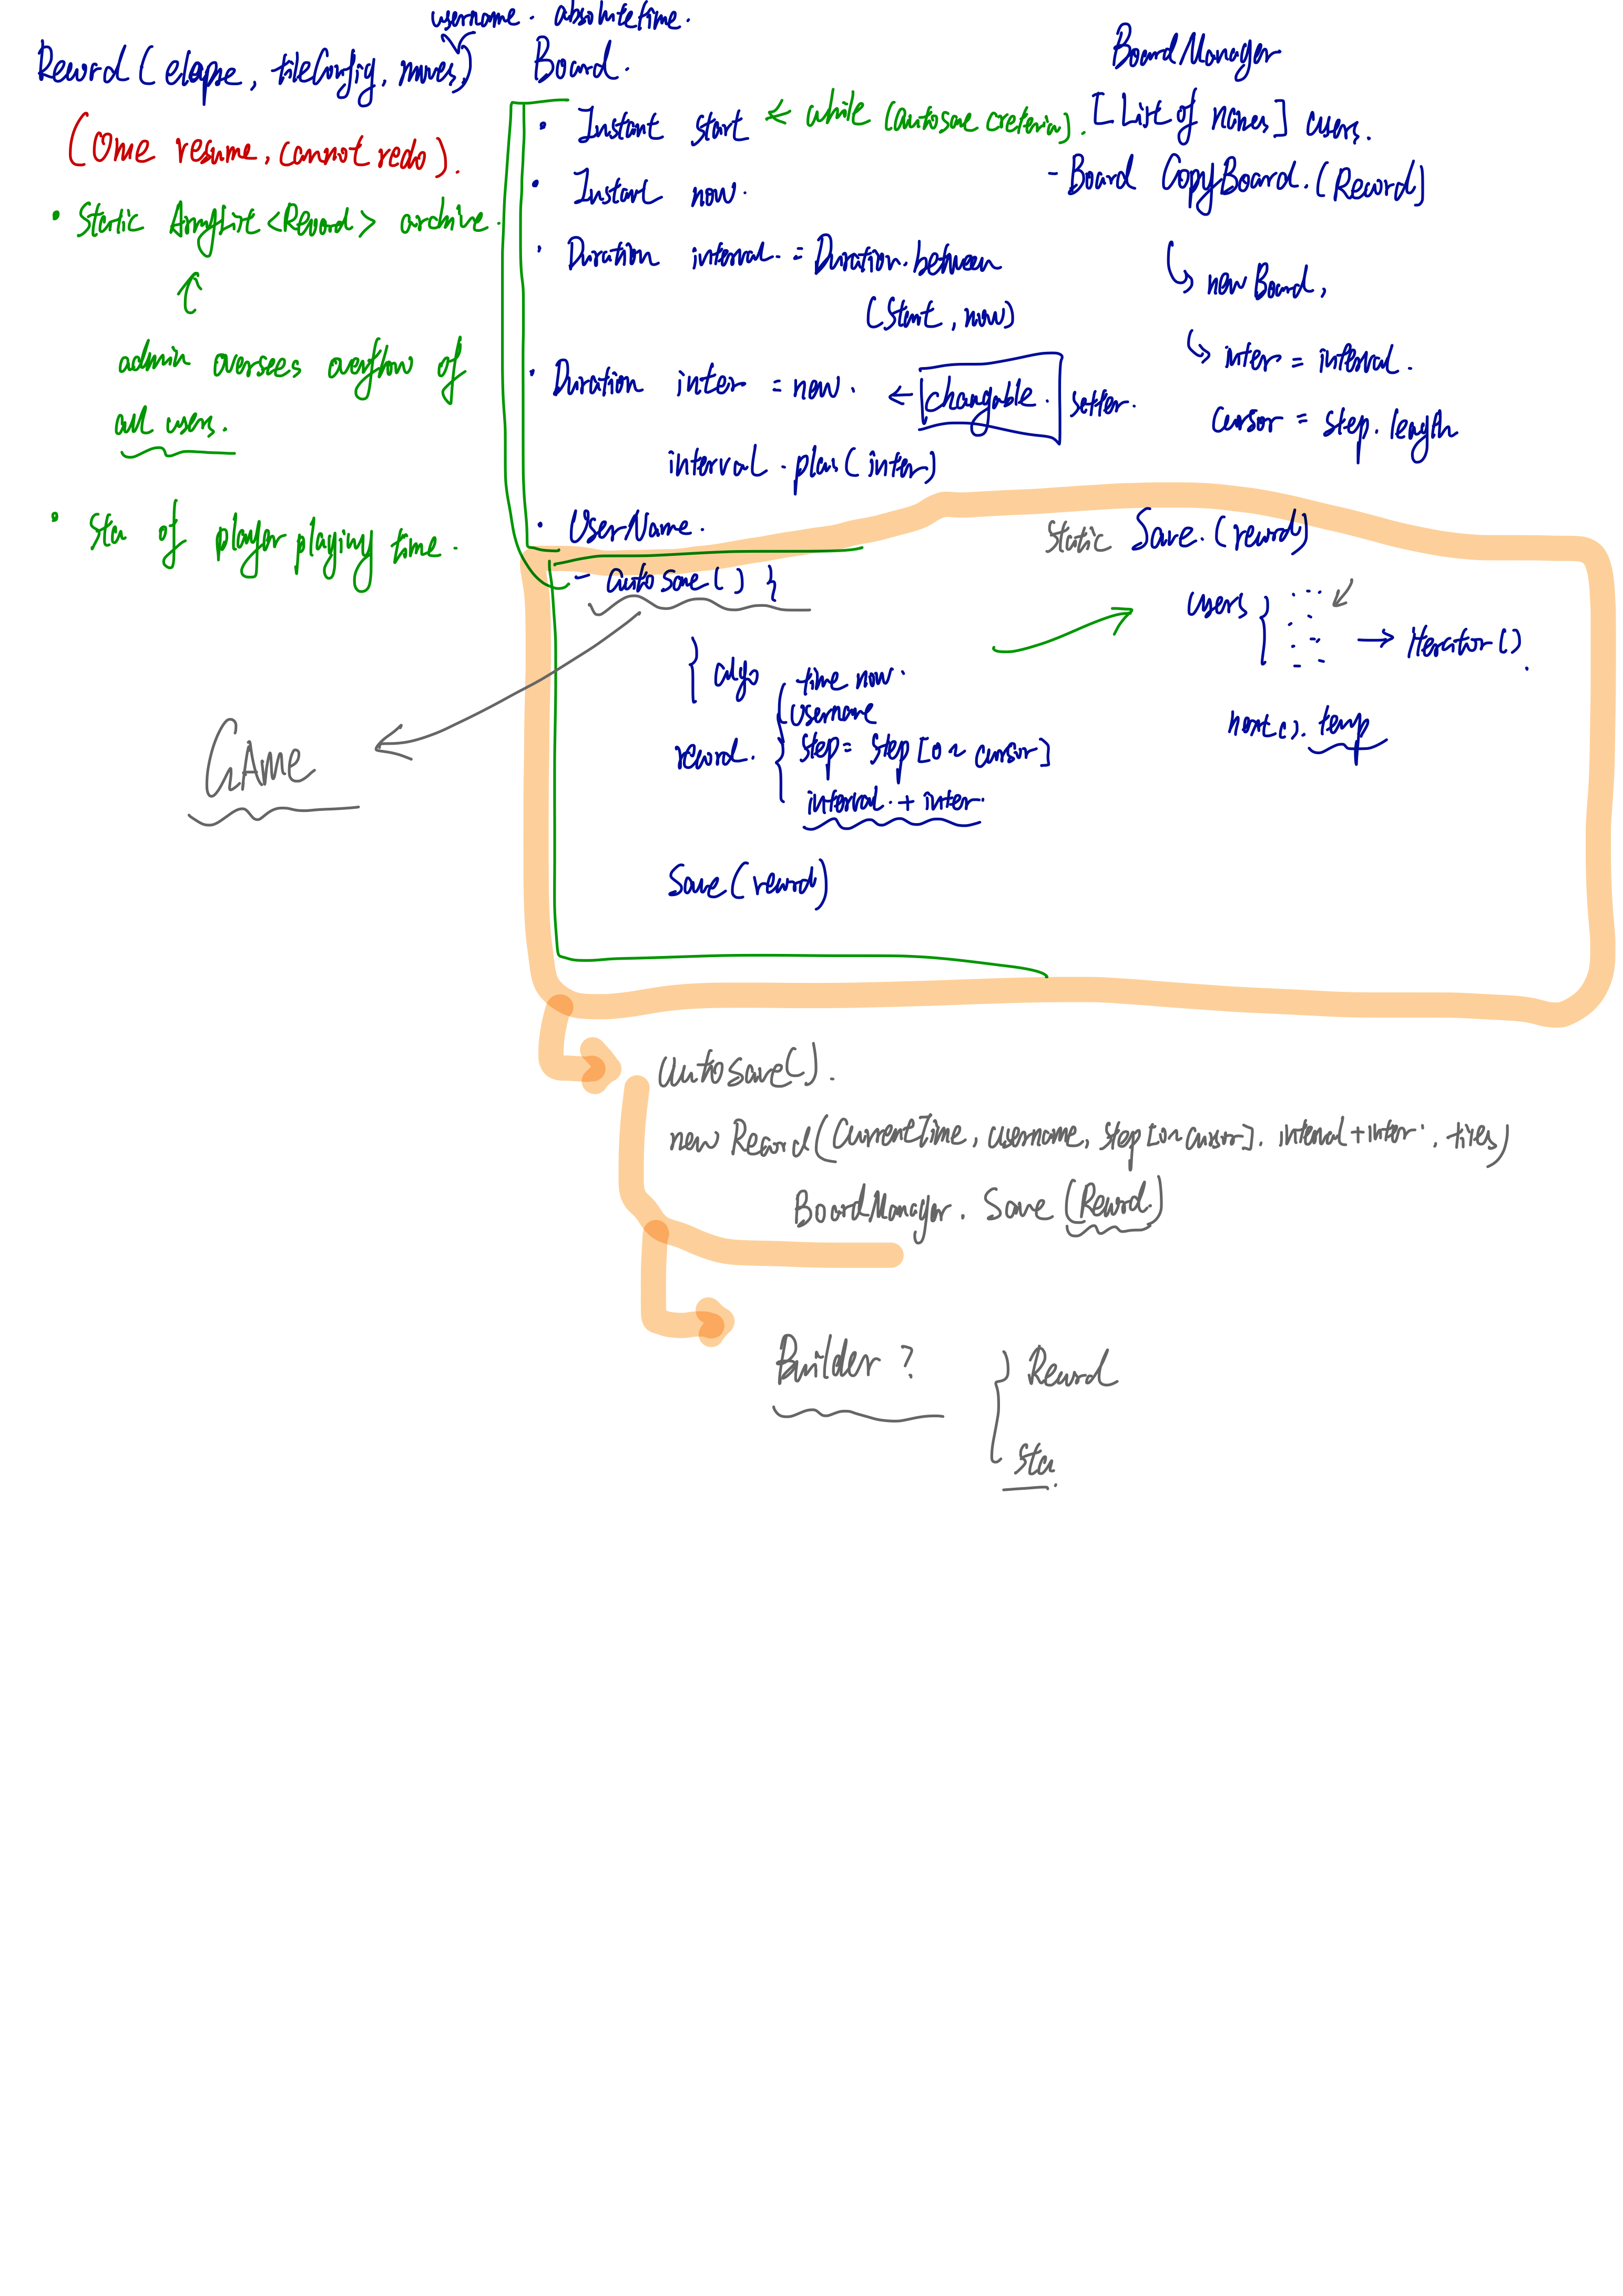 username. absolutetime.
Record (elapse, tileConfig, moves)
(Once resume, cannot redo).
• Static ArrayList <Record> archive.
admin oversees overflow of
all users.
• Sta of player playing time.
Board.
• Instant start ← while (autosave creteria).
• Instant now.
• Duration interval. = Duration.between
(Start, now)
• Duration inter = new. ← [changable.] setter.
interval.plus(inter)
• UserName.
- autosave() {
} algo
record. { time now.
username
step = step [0 ~ cursor]
interval. + inter.
Save (record)
GAme
BoardManager
[List of names] users.
- Board CopyBoard. (Record)
↳ new Board,
↳ inter = interval.
cursor = step.length
Static Save.(record)
users { → iterator().
next(). temp
autosave().
new Record (CurrentTime, username, step [0~cursor]. interval+inter, tiles)
BoardManager. Save (Record.)
Builder ?
} Record
sta.